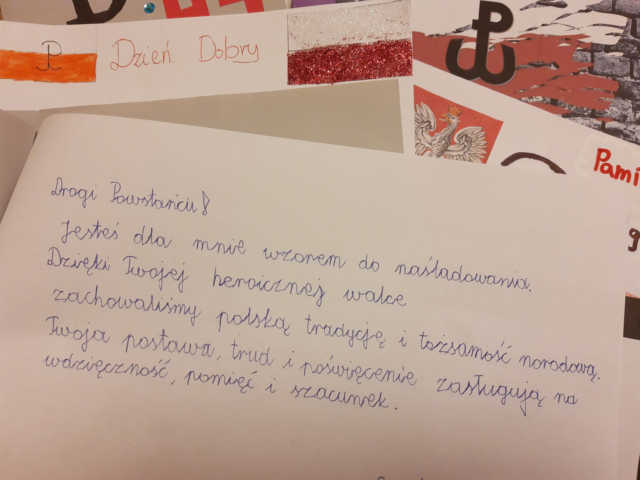 Dzień Dobry
Pami
Drogi Powstańcu!
Jesteś dla mnie wzorem do naśladowania.
Dzięki Twojej heroicznej walce
zachowaliśmy polską tradycję i tożsamość norodową.
Twoja postawa, trud i poświęcenie zasługują na
wdzięczność, pomięć i szacunek.